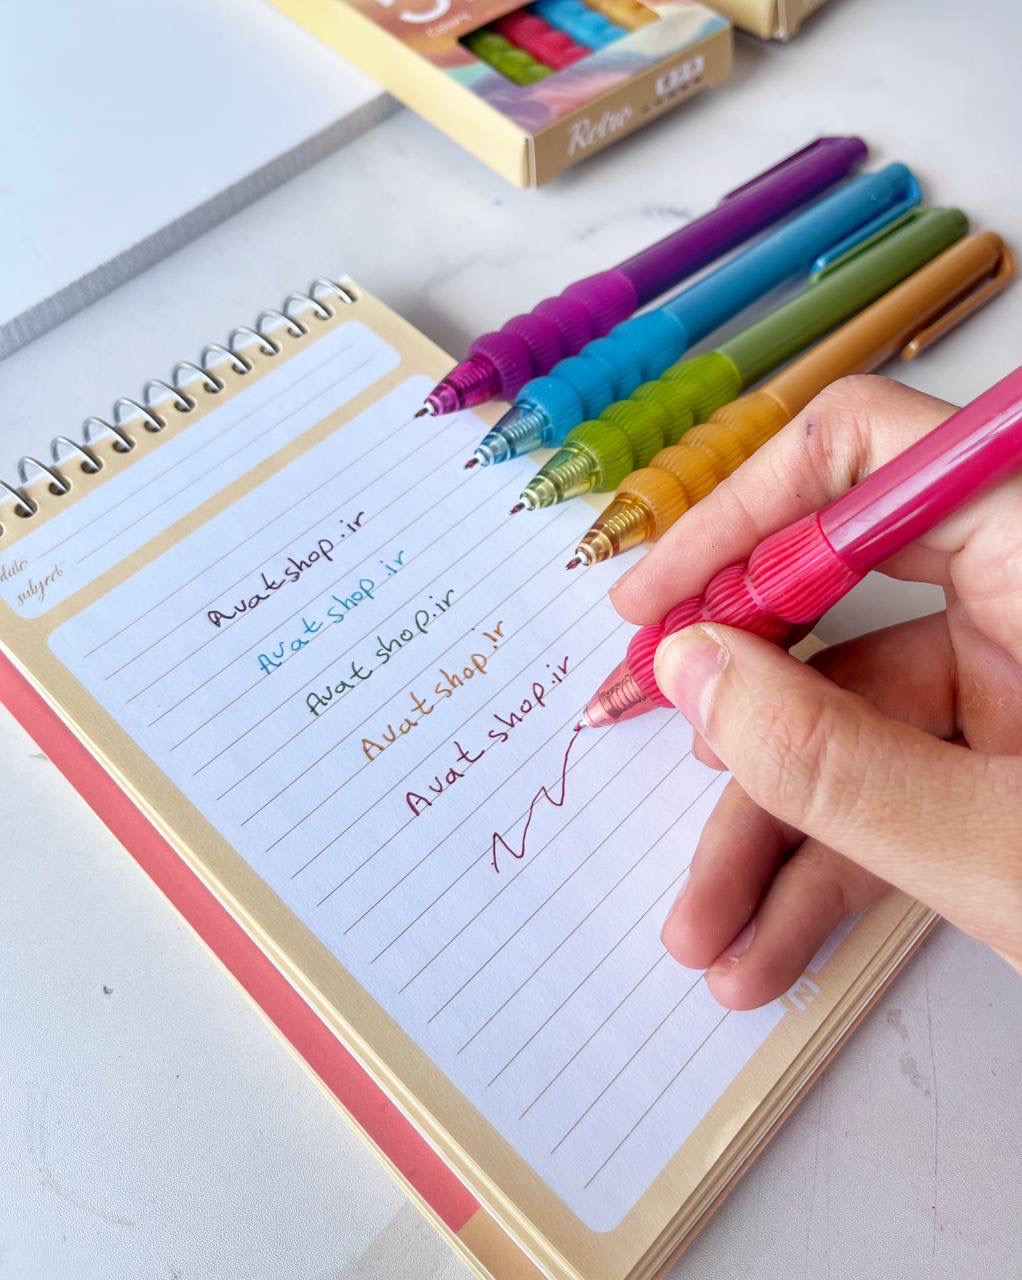 Retro
date
subject
Avatshop.ir
Avatshop.ir
Avatshop.ir
Avatshop.ir
Avatshop.ir